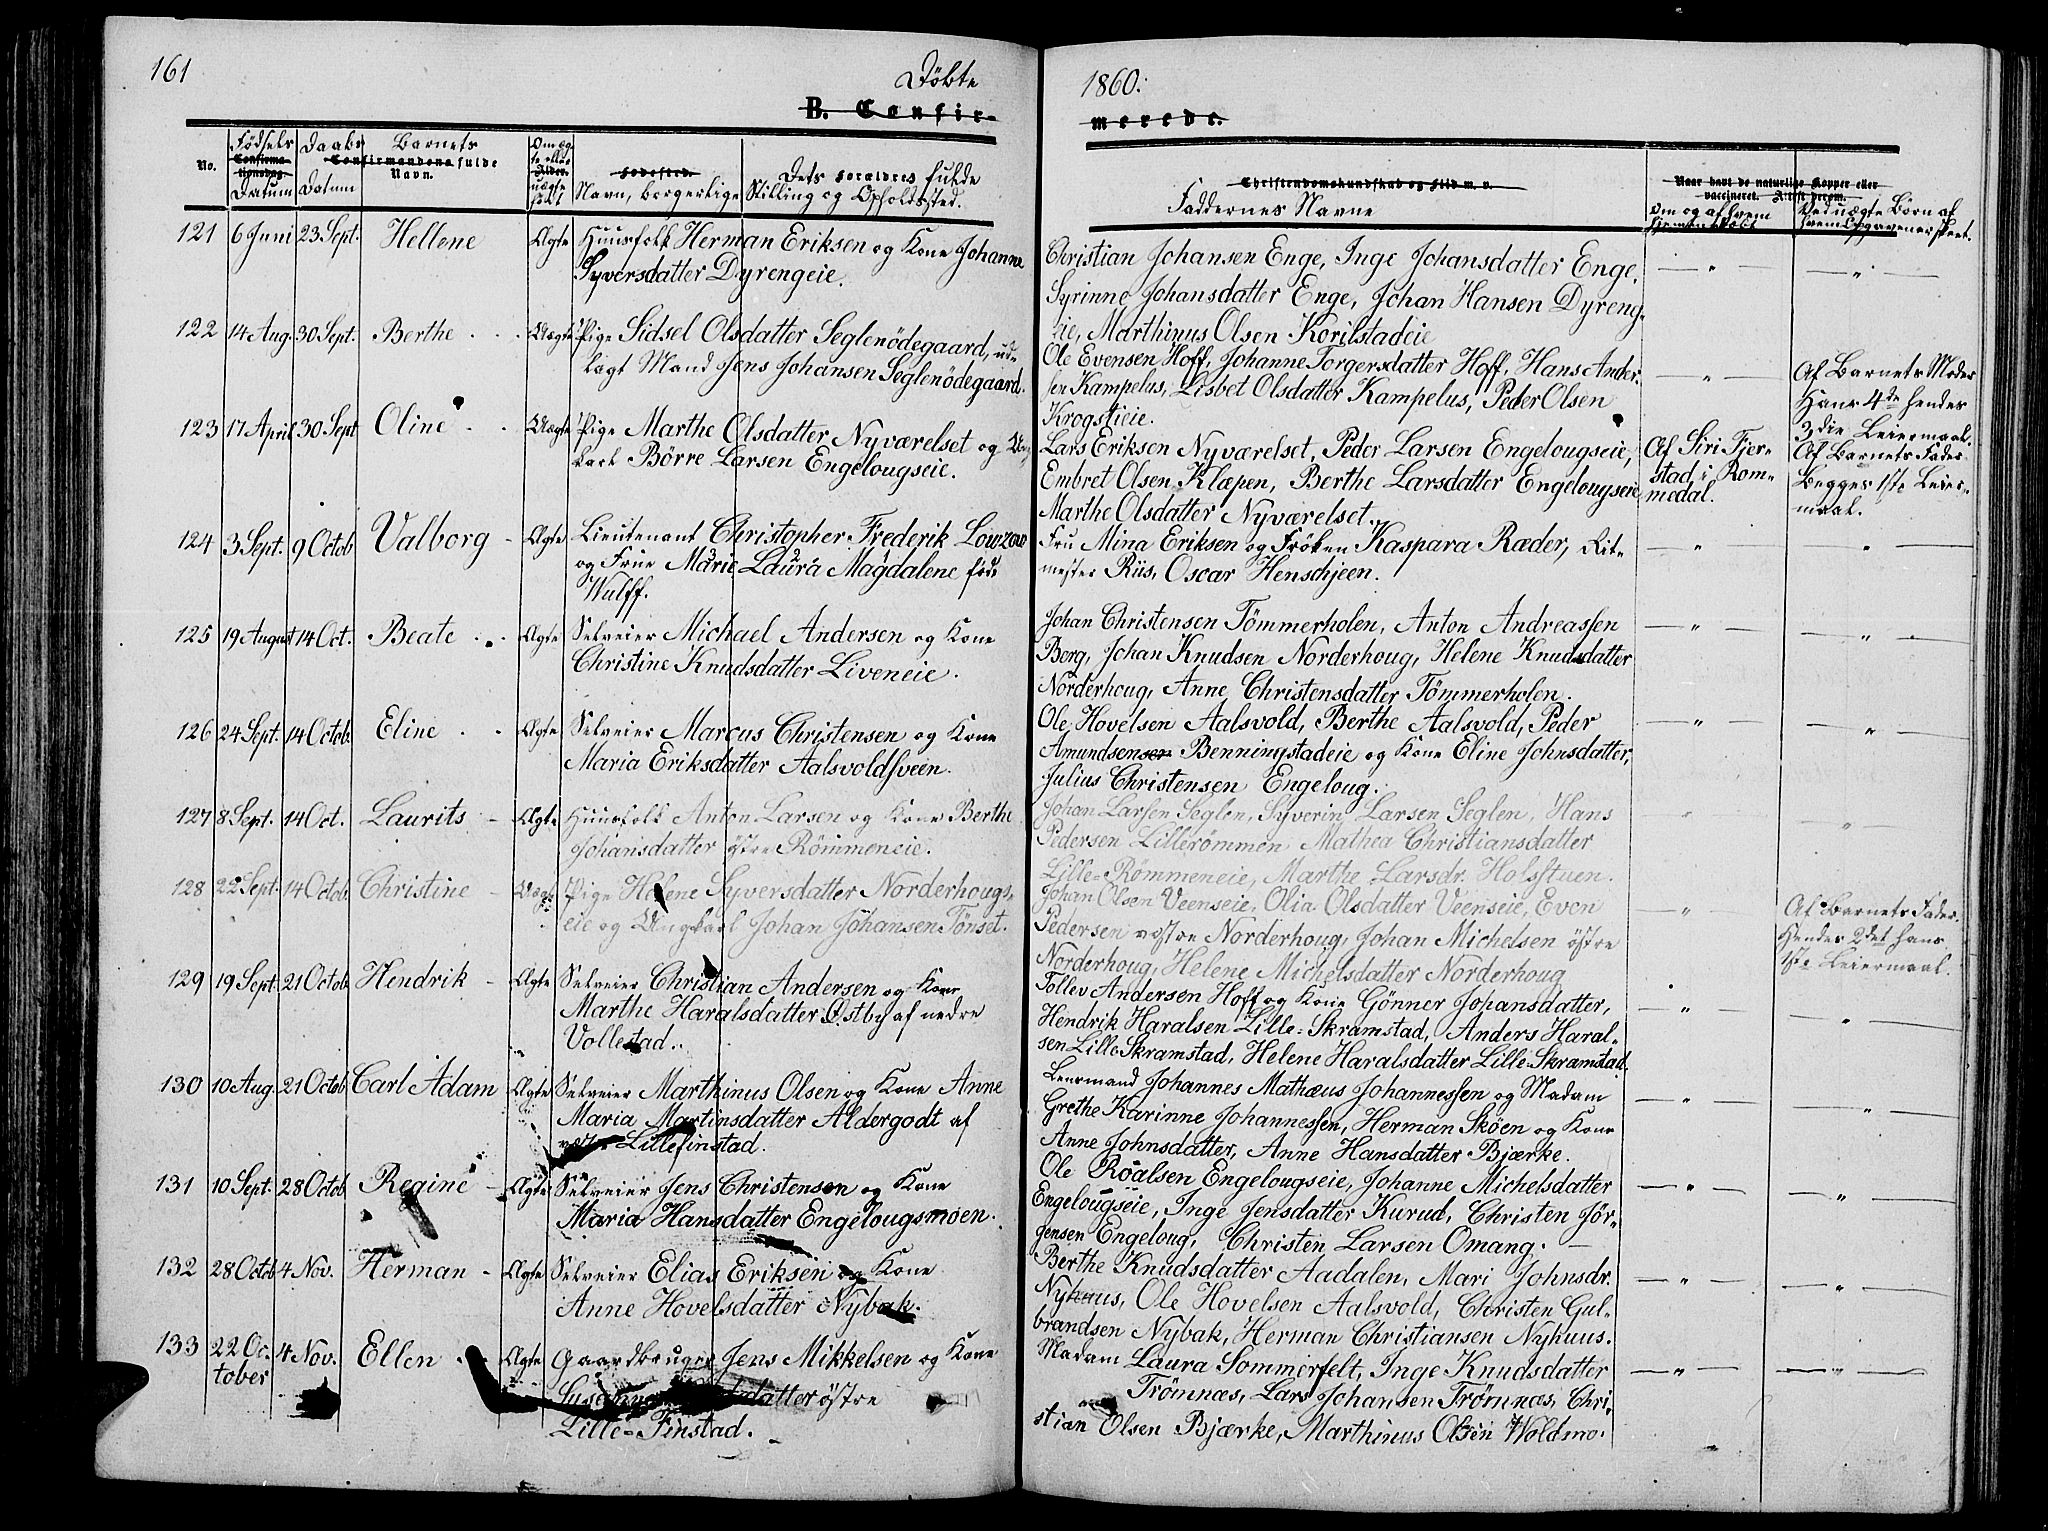 161 Döbte 1860.
B. Confir-
merede.
No. Födsels Daabs Barnets
Confirma- Confirmandens fulde
tionsdag. Navn.
Datum Datum
Om æg-
te eller
Alder.
uægte
födt
Fødested. Dets Forældres fulde
Navn, borgerlige Stilling og Opholdssted.
Christendomskundskab og Flid m. v.
Faddernes Navne
Naar havt de naturlige Kopper eller
vaccineret. Attest derom.
Om og af hvem Ved uægte Börn af
hjemmedöbt hvem Opgaven er skeet.
121 6 Juni 23 Sept. Hellene Ægte Huusfolk Herman Eriksen og Kone Johanne
Syversdatter Dyrengeie.
Christian Johansen Enge, Inge Johansdatter Enge,
Syrinne Johansdatter Enge, Johan Hansen Dyreng-
eie, Marthinus Olsen Korilstadeie
122 14 Aug. 30 Sept. Berthe Uægte Pige Sidsel Olsdatter Seglenödegaard, ud-
lagt Mand Jens Johansen Seglenödegaard.
Ole Evensen Hoff, Johanne Torgersdatter Hoff, Hans Ander-
sen Kampelus, Lisbet Olsdatter Kampelus, Peder Olsen
Krogstieie.
Af Barnets Moder
Hans 4de hendes
3die Leiermaal.
123 17 April 30 Sept Oline Uægte Pige Marthe Olsdatter Nyværelset og Ung-
karl Börre Larsen Engelougseie.
Lars Eriksen Nyværelset, Peder Larsen Engelougseie,
Embret Olsen Klæpen, Berthe Larsdatter Engelougseie
Marthe Olsdatter Nyværelset.
Af Siri Fjer-
stad i Rom-
medal.
Af Barnets Fader
Begges 1ste Leier-
maal.
124 3 Sept. 9 Octob Valborg Ægte Lieutenant Christopher Frederik Lowzow
og Frue Marie Laura Magdalene föd
Wulff.
Fru Mina Eriksen og Fröken Kaspara Ræder, Rit-
mester Riis, Oscar Henschjeen.
125 19 August 14 Oct. Beate Ægte Selveier Michael Andersen og Kone
Christine Knudsdatter Liveneie.
Johan Christensen Tömmerholen, Anton Andreassen
Berg, Johan Knudsen Norderhoug, Helene Knudsdatter
Norderhoug, Anne Christensdatter Tömmerholen.
126 24 Sept. 14 Octob. Eline Ægte Selveier Marcus Christensen og Kone
Maria Eriksdatter Aalsvoldsveen.
Ole Hovelsen Aalsvold, Berthe Aalsvold, Peder
Amundsensen Benningstadeie og Kone Eline Johnsdatter,
Julius Christensen Engeloug.
127 8 Sept. 14 Oct. Laurits Ægte Huusfolk Anton Larsen og Kone Berthe
Johansdatter östre Römmeneie.
Johan Larsen Seglen, Syverin Larsen Seglen, Hans
Pedersen Lillerömmen Mathea Christiansdatter
Lille-Römmeneie, Marthe Larsdr. Holsstuen.
128 22 Sept. 14 Octob. Christine Uægte Pige Helene Syversdatter Norderhougs-
eie og Ungkarl Johan Johansen Tönset.
Johan Olsen Veenseie, Olia Olsdatter Veenseie, Even
Pedersen vestre Norderhoug, Johan Michelsen östre
Norderhoug, Helene Michelsdatter Norderhoug
Af Barnets Fader.
Hendes 2det hans
1ste Leiermaal.
129 19 Sept. 21 Octob Hendrik Ægte Selveier Christian Andersen og Kone
Marthe Haralsdatter Østby af nedre
Vollestad.
Tollev Andersen Hoff og Kone Gönner Johansdatter,
Hendrik Haralsen Lille-Skramstad, Anders Haral-
sen Lille Skramstad, Helene Haralsdatter Lille-Skramstad.
130 10 Aug. 21 Octob Carl Adam Ægte Selveier Marthinus Olsen og Kone Anne
Maria Martinsdatter Aldergodt af
vestre Lillefinstad.
Lensmand Johannes Mathæus Johannessen og Madam
Grethe Karinne Johannessen, Herman Sköen og Kone
Anne Johnsdatter, Anne Hansdatter Bjærke.
131 10 Sept. 28 Octob Regine Ægte Selveier Jens Christensen og Kone
Maria Hansdatter Engelougsmoen.
Ole Roalsen Engelougseie, Johanne Michelsdatter
Engelougseie, Inge Jensdatter Kurud, Christen Jör-
gensen Engeloug, Christen Larsen Omang.
132 28 Octob 4 Nov. Herman Ægte Selveier Elias Eriksen og Kone
Anne Hovelsdatter Nybak.
Berthe Knudsdatter Aadalen, Mari Johnsdr.
Nyhuus, Ole Hovelsen Aalsvold, Christen Gul-
brandsen Nybak, Herman Christiansen Nyhuus.
133 22 Oc- 4 Nov. Ellen Ægte Gaardbruger Jens Mikkelsen og Kone
tober
östre
Lille-Finstad.
Madam Laura Sommerfelt, Inge Knudsdatter
Trömnæs, Lars Johansen Trömnæs, Chri-
stian Olsen Bjærke, Marthinus Olsen Woldmo.